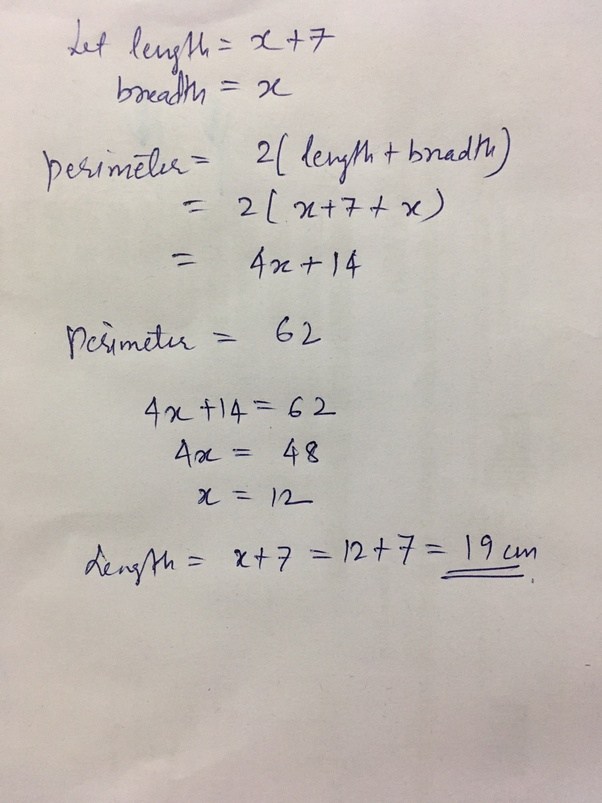 Let length = x+7
breadth = x
perimeter = 2(length + breadth)
= 2(x+7+x)
= 4x+14
Perimeter = 62
4x+14 = 62
4x = 48
x = 12
Length = x+7 = 12+7 = 19 cm.